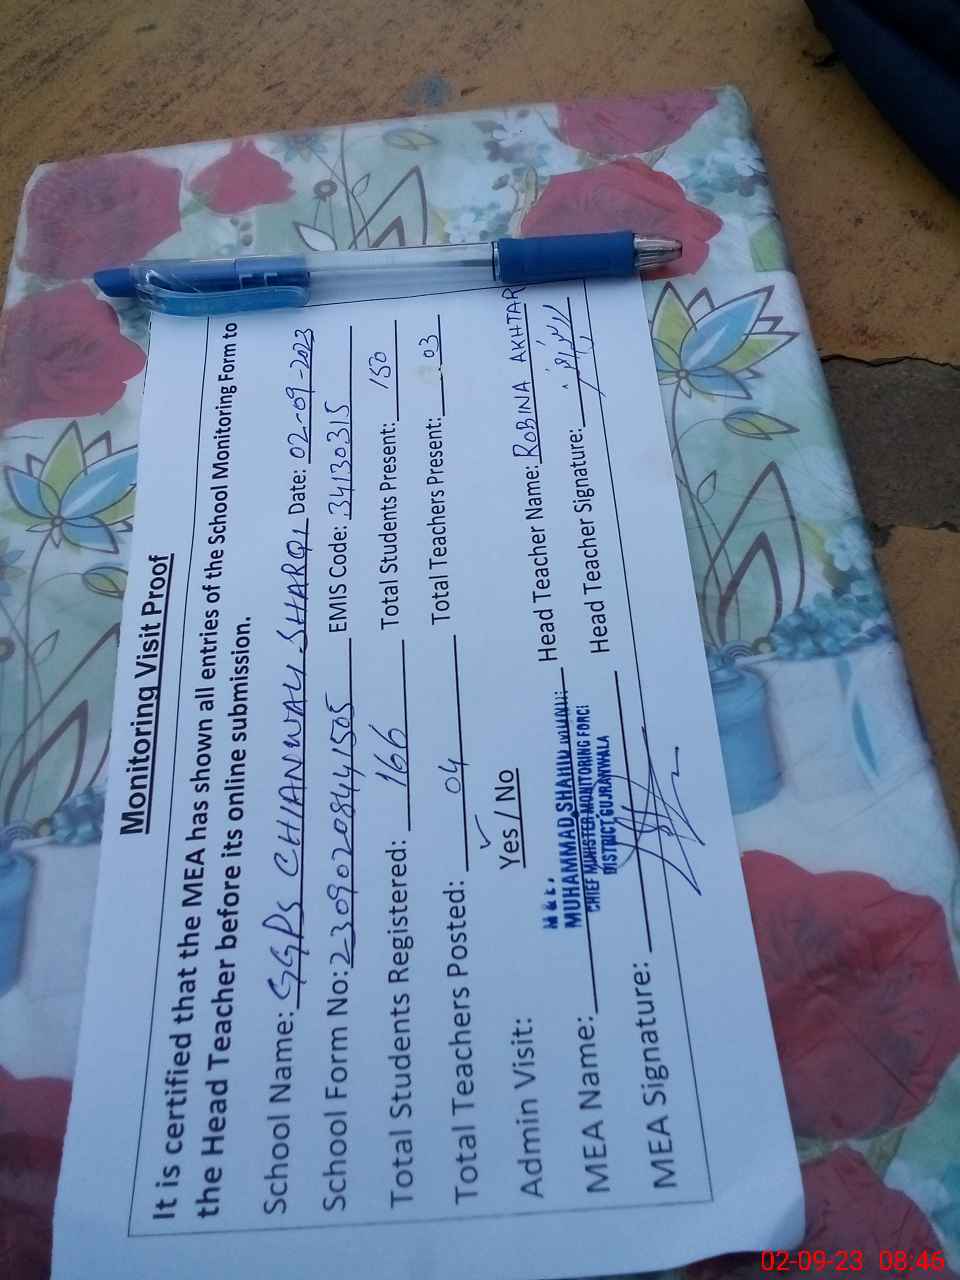 Monitoring Visit Proof
It is certified that the MEA has shown all entries of the School Monitoring Form to
the Head Teacher before its online submission.
School Name: GGPS CHIANWALI SHARQI Date: 02-09-2023
School Form No: 2309020841505 EMIS Code: 34130315
Total Students Registered: 166 Total Students Present: 150
Total Teachers Posted: 04 Total Teachers Present: 03
Admin Visit: Yes / No
M & E,
MEA Name: MUHAMMAD SHAHID Head Teacher Name: ROBINA AKHTAR
CHIEF MINISTER MONITORING FORCE
DISTRICT GUJRANWALA
MEA Signature: Head Teacher Signature:
02-09-23 08:46